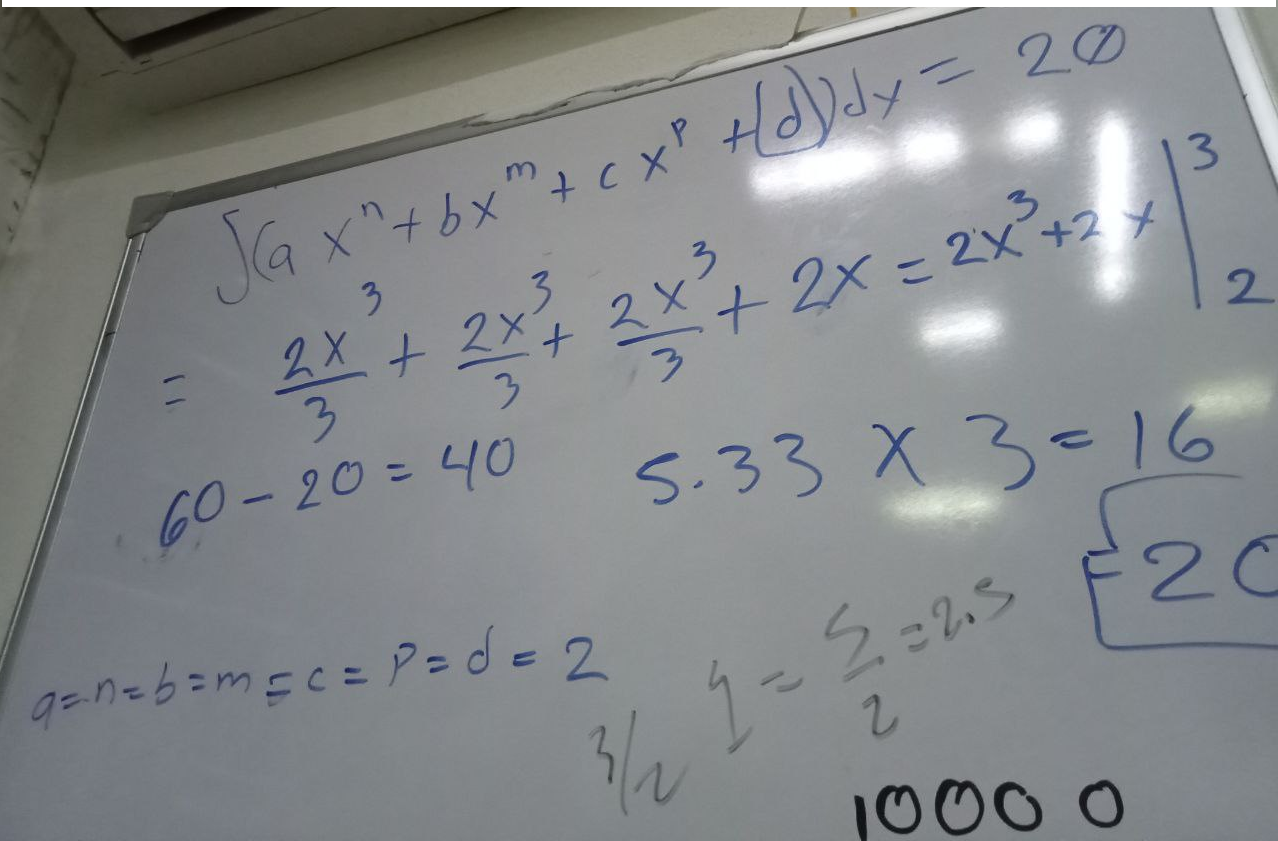 ∫(a xⁿ + bx^m + c x^p + (d))dx = 20
= 2x³/3 + 2x³/3 + 2x³/3 + 2x = 2x³ + 2x |³₂
60 - 20 = 40
5.33 x 3 = 16
= 20
a=n=b=m=c=p=d=2
= 5/2 = 2.5
3/2
10000